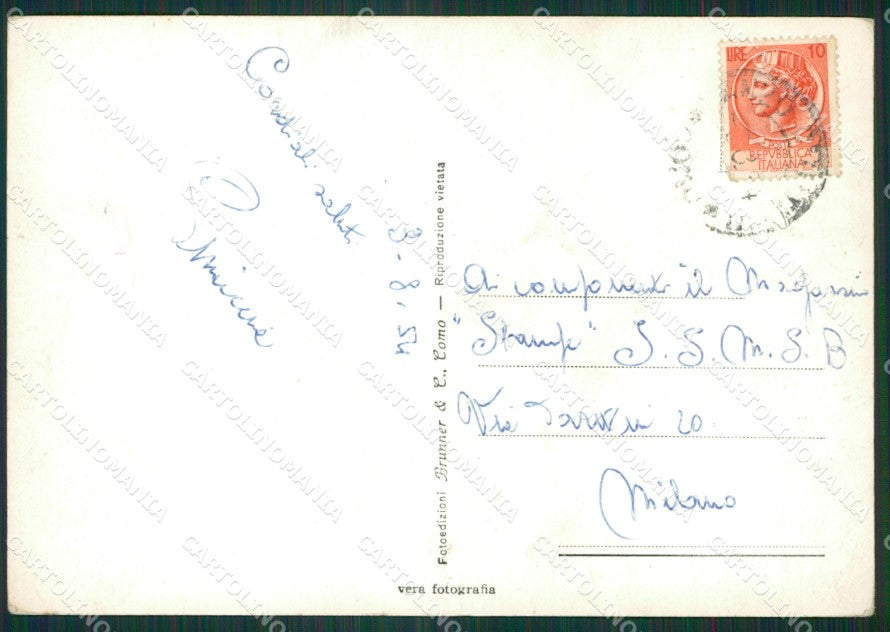 Cordiali saluti
8 -
Fotoedizioni Brunner & C., Como — Riproduzione vietata
LIRE 10
POSTE
REPVBBLICA
ITALIANA
Ai componenti "il Magazzino
"Stamp" S. S. M. S. B
Via 20
Milano
vera fotografia
CARTOLINOMANIA